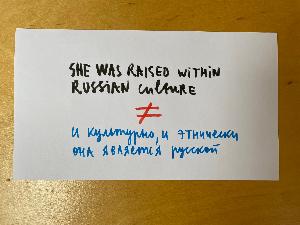 SHE WAS RAISED WITHIN
RUSSIAN CULTURE
≠
И КУЛЬТУРНО, И ЭТНИЧЕСКИ
ОНА ЯВЛЯЕТСЯ РУССКОЙ